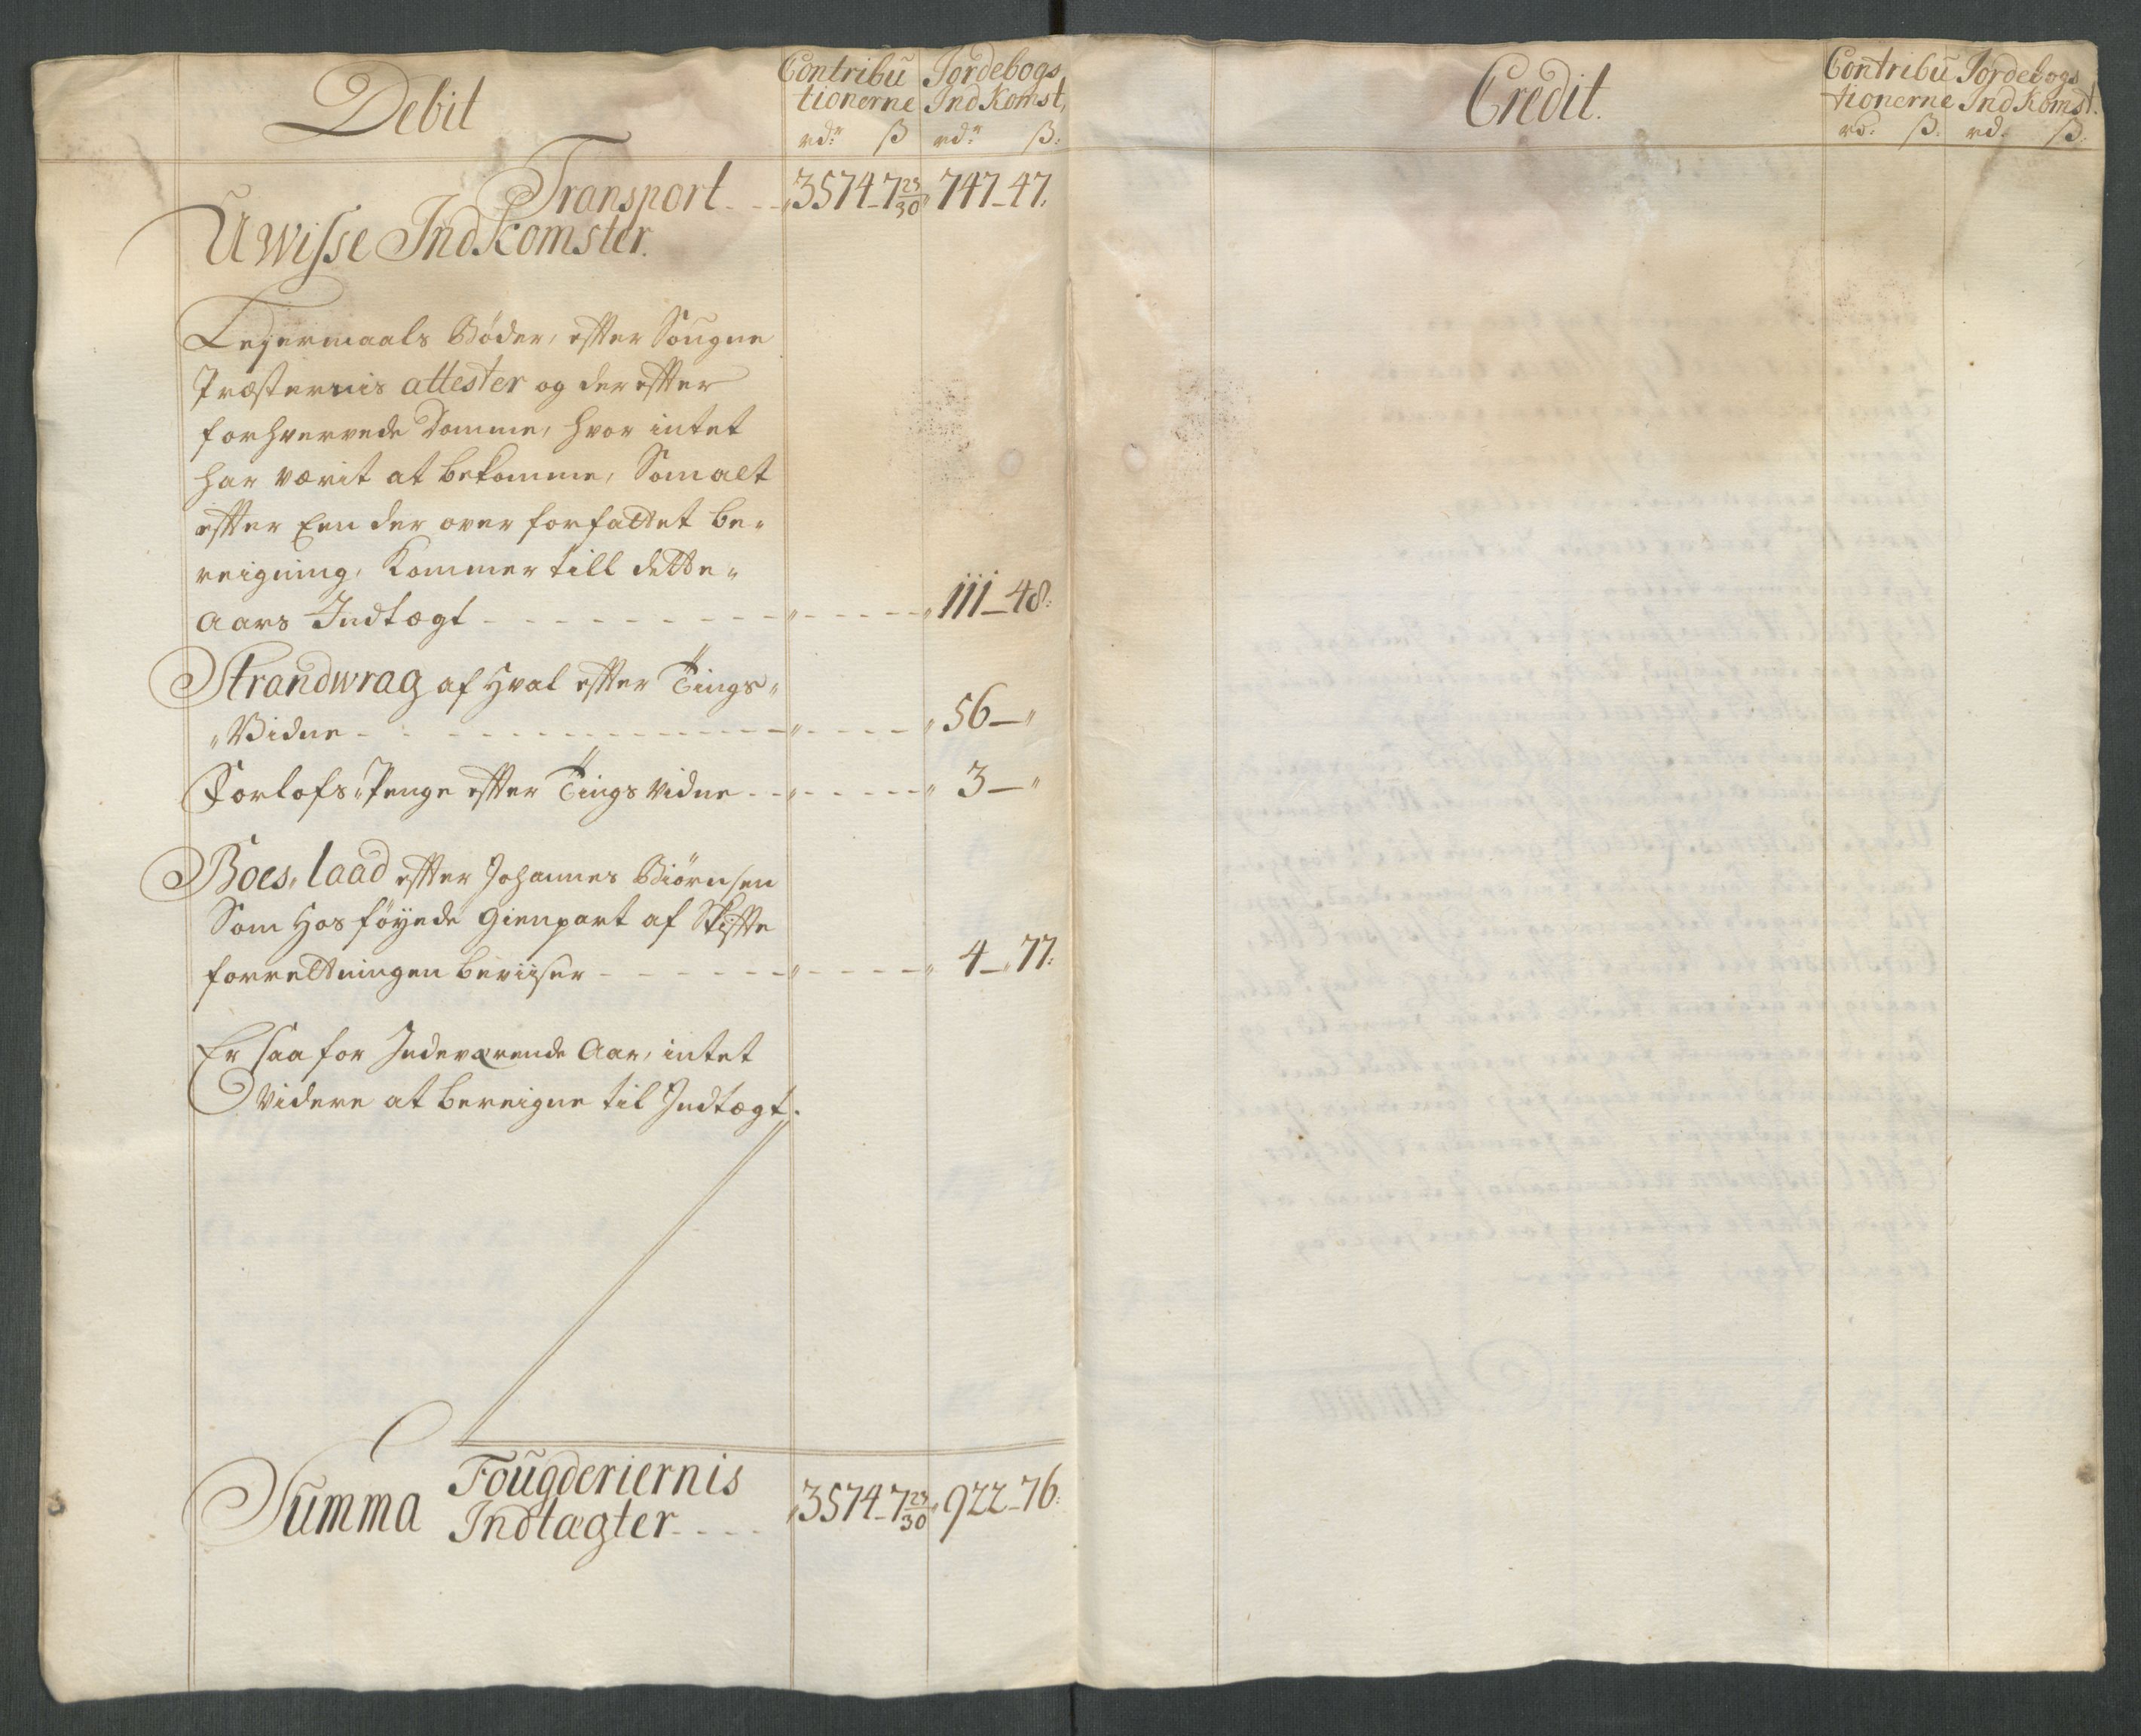 Debit
Contribu
tionerne
rdr ß
Jordebogs
IndKomst,
rdr ß:
Transport - - 3574-7 23/30 747-47.
Uwisse IndKomster.
Lejermaals Bøder, efter Sougne
Præsternis attester og der efter
forhvervede Domme, hvor intet
har værit at bekomme, Som alt
efter Een der over forfattet be-
reigning, Kommer till dette
Aars Indtægt - - - - " - - - " 111-48:
Strandwrag af Hval efter Tings-
Vidne - - - - " - - - " 56-"
Forlofs Penge efter Tings Vidne - - " - - - " 3-"
Boes, laad efter Johannes Biørnsen
Som Hos føyede Gienpart af Skifte
forrettningen beviiser - - - - " - - - " 4-77:
Er saa for Indeværende Aar, intet
Videre at bereigne til Indtægt.
Summa Fougderiernis
Indtægter - - - 3574-7 23/30 922-76:
Credit.
Contribu
tionerne
rd: ß:
Jordebogs
IndKomst.
rd: ß: